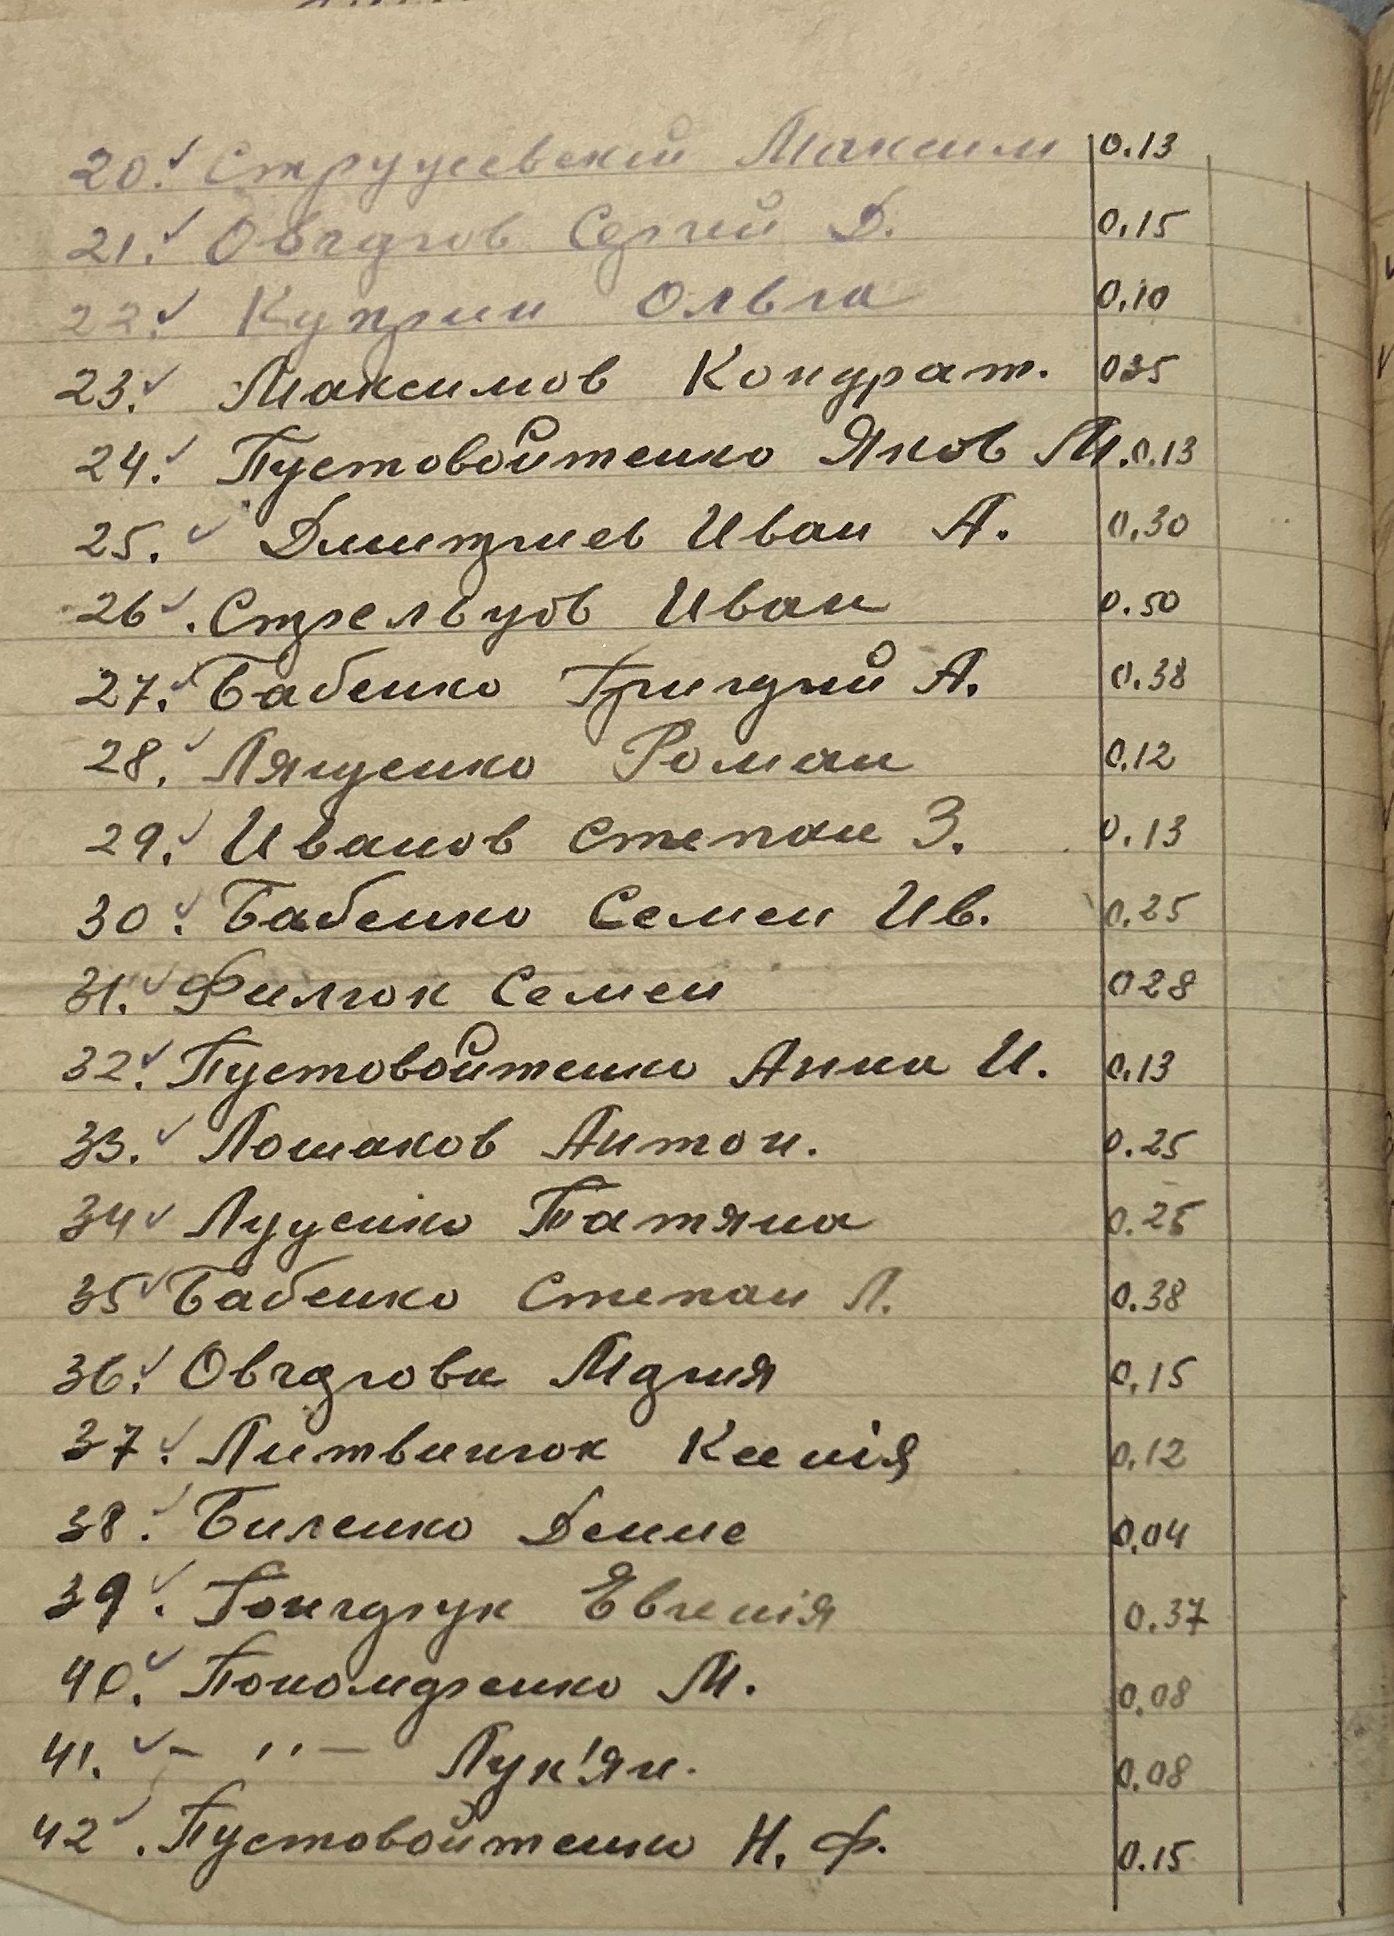 20. Струцевский Максим 0.13
21. Овчаров Сергий Д. 0.15
22. Куприй Ольга 0.10
23. Максимов Кондрат. 035
24. Пустовойтенко Яков М. 0.13
25. Дмитриев Иван А. 0.30
26. Стрельцов Иван 0.50
27. Бабенко Григорий А. 0.38
28. Лященко Роман 0.12
29. Иванов Степан З. 0.13
30. Бабенко Семен Ив. 0.25
31. Филюк Семен 028
32. Пустовойтенко Анна И. 0.13
33. Лошаков Антон. 0.25
34 Луценко Татяна 0.25
35 Бабенко Степан Л. 0.38
36. Овчарова Мария 0.15
37. Литвинюк Ксенія 0.12
38. Биленко Денис 0.04
39. Гончарук Евгенія 0.37
40. Пономаренко М. 0.08
41. – " – Лук'ян. 0.08
42. Пустовойтенко Н. Ф. 0.15